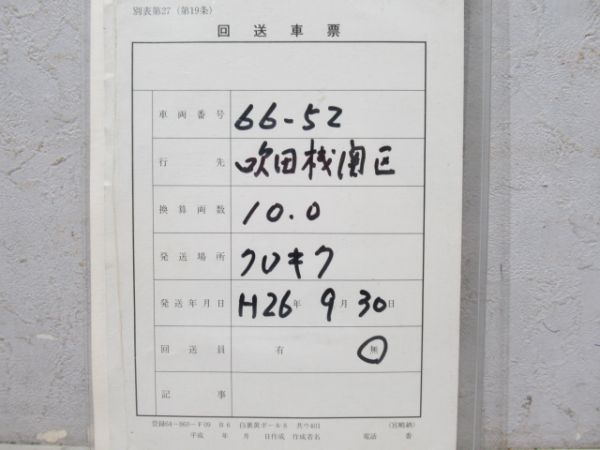 別表第27（第19条）
回送車票
車両番号 66-52
行先 吹田機関区
換算両数 10.0
発送場所 クレキク
発送年月日 H26年 9月 30日
回送員 有 無
記事
平成 年 月 日作成 作成者名 電話 番